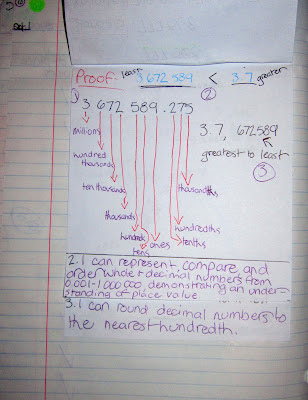 Proof: least 3.672 589 < 3.7 greater
① ②
3 672 589 . 275
3.7, 672589
greatest to least
③
millions
hundred thousands
ten thousands
thousands
hundreds
tens
ones
tenths
hundredths
thousandths
2. I can represent compare and
order whole + decimal numbers from
0.001-1 000 000, demonstrating an under-
standing of place value.
3. I can round decimal numbers to
the nearest hundredth.